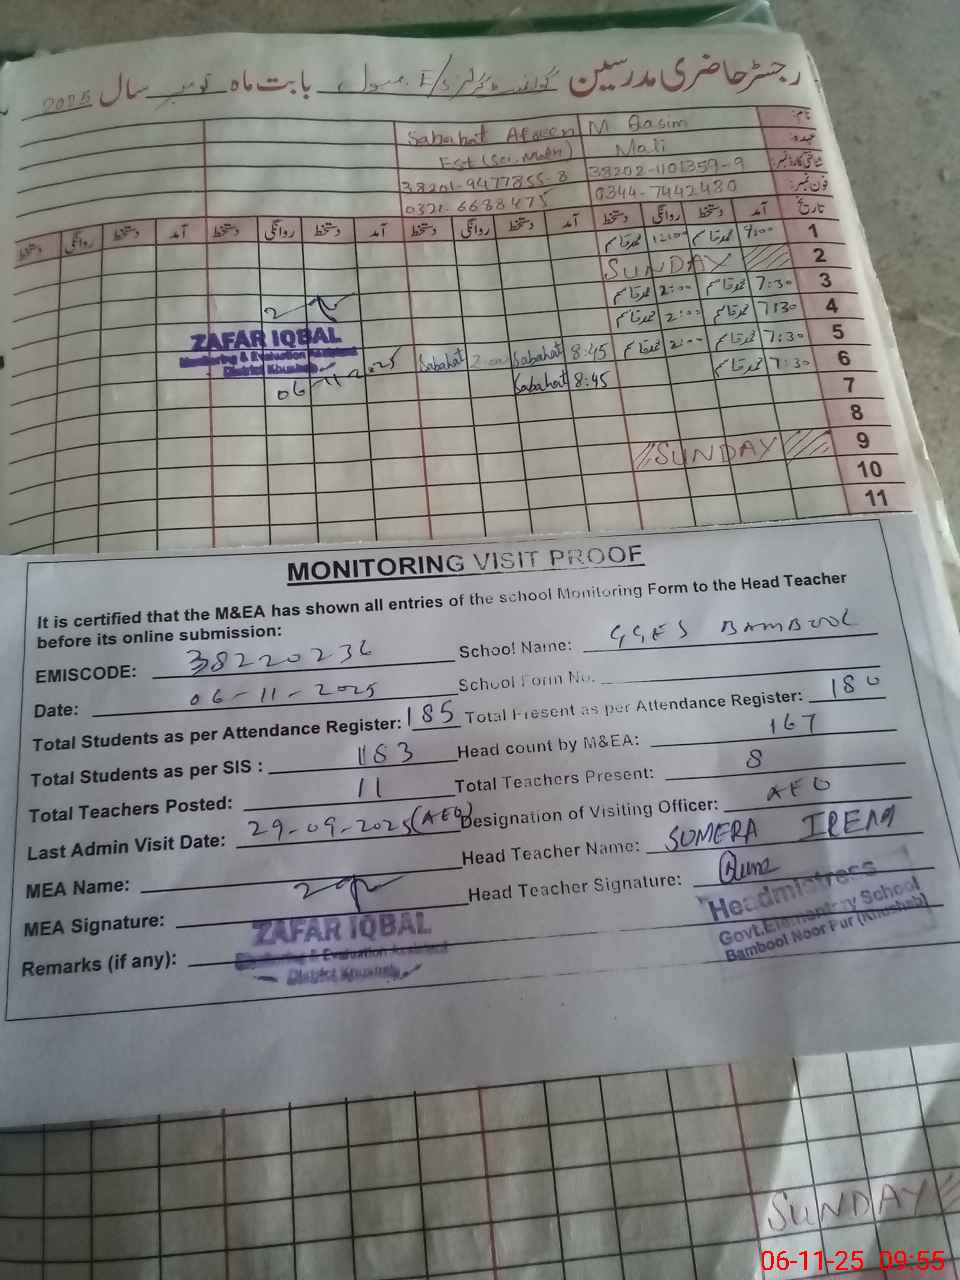 رجسٹر حاضری مدرسین گورنمنٹ گرلز E/S بمبول بابت ماہ نومبر سال 2025
نام: M Qasim Sabahat Afreen
عہدہ: Mali Est (Sci, Math)
شناختی کارڈ نمبر: 38202-1101359-9 38201-9477855-8
فون نمبر: 0344-7442480 0321-6688475
تاریخ آمد دستخط روانگی دستخط آمد دستخط روانگی دستخط آمد دستخط روانگی دستخط آمد دستخط روانگی دستخط
1 محمد قاسم 12:00 محمد قاسم
2 SUNDAY
3 7:30 محمد قاسم 2:00 محمد قاسم
4 7:30 محمد قاسم 2:00 محمد قاسم
5 7:30 محمد قاسم 2:00 محمد قاسم 8:45 Sabahat 2:00 Sabahat
6 7:30 محمد قاسم 8:45 Sabahat
7
8
9 SUNDAY
10
11
ZAFAR IQBAL
Monitoring & Evaluation Assistant
District Khushab
06-11-2025
MONITORING VISIT PROOF
It is certified that the M&EA has shown all entries of the school Monitoring Form to the Head Teacher
before its online submission:
EMISCODE: 38220236 School Name: GGES BAMBOOL
Date: 06-11-2025 School Form No.
Total Students as per Attendance Register: 185 Total Present as per Attendance Register: 180
Total Students as per SIS : 183 Head count by M&EA: 167
Total Teachers Posted: 11 Total Teachers Present: 8
Last Admin Visit Date: 29-09-2025 (AEO) Designation of Visiting Officer: AEO
MEA Name: Head Teacher Name: SUMERA IREM
MEA Signature: Head Teacher Signature:
Remarks (if any):
ZAFAR IQBAL
Monitoring & Evaluation Assistant
District Khushab
Headmistress
Govt.Elementary School
Bambool Noor Pur (Khushab)
SUNDAY
06-11-25 09:55